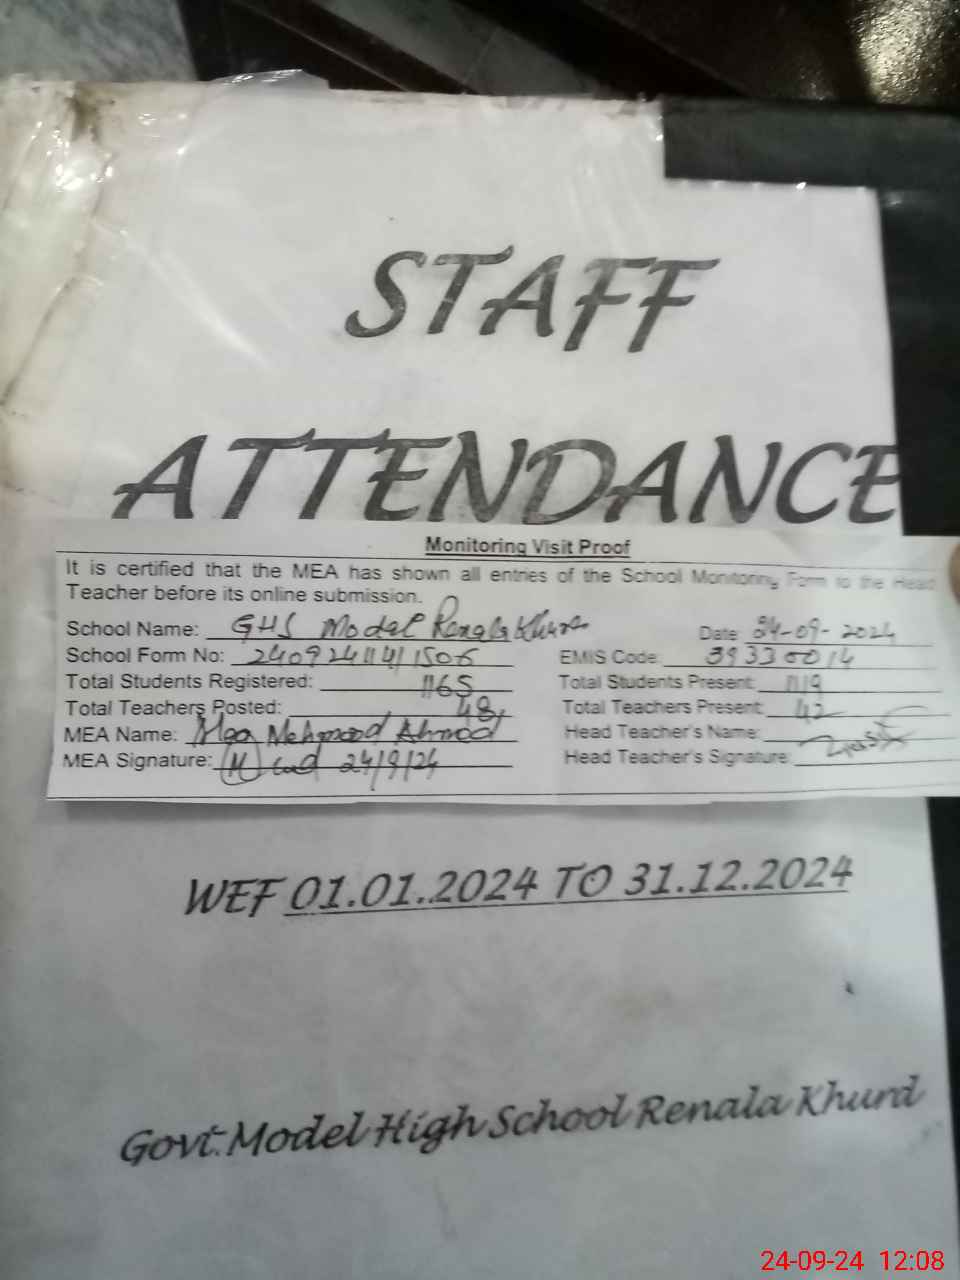 STAFF
ATTENDANCE
Monitoring Visit Proof
It is certified that the MEA has shown all entries of the School Monitoring Form to the Head
Teacher before its online submission.
School Name: GHS Model Renala Khurd Date: 24-09-2024
School Form No: EMIS Code: 39330014
Total Students Registered: 1165 Total Students Present: 1119
Total Teachers Posted: 48 Total Teachers Present: 42
MEA Name: Mehmood Ahmad Head Teacher's Name:
MEA Signature: 24/9/24 Head Teacher's Signature:
WEF 01.01.2024 TO 31.12.2024
Govt. Model High School Renala Khurd
24-09-24 12:08